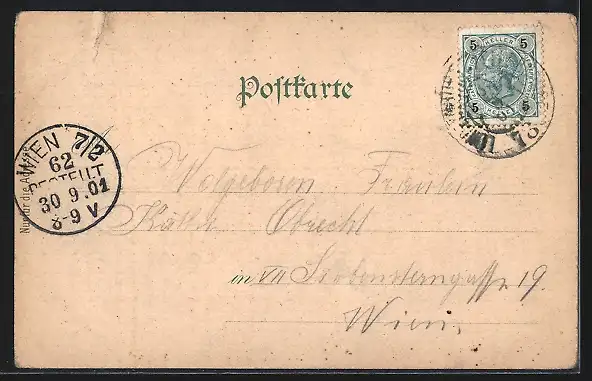 5 HELLER 5
5 5
Postkarte
WIEN 7/2
62
BESTELLT
30 9.01
8-9 V
Nur für die Adresse
Wolgeboren Fräulein
Käthe Obrecht
in VII 19
Wien.